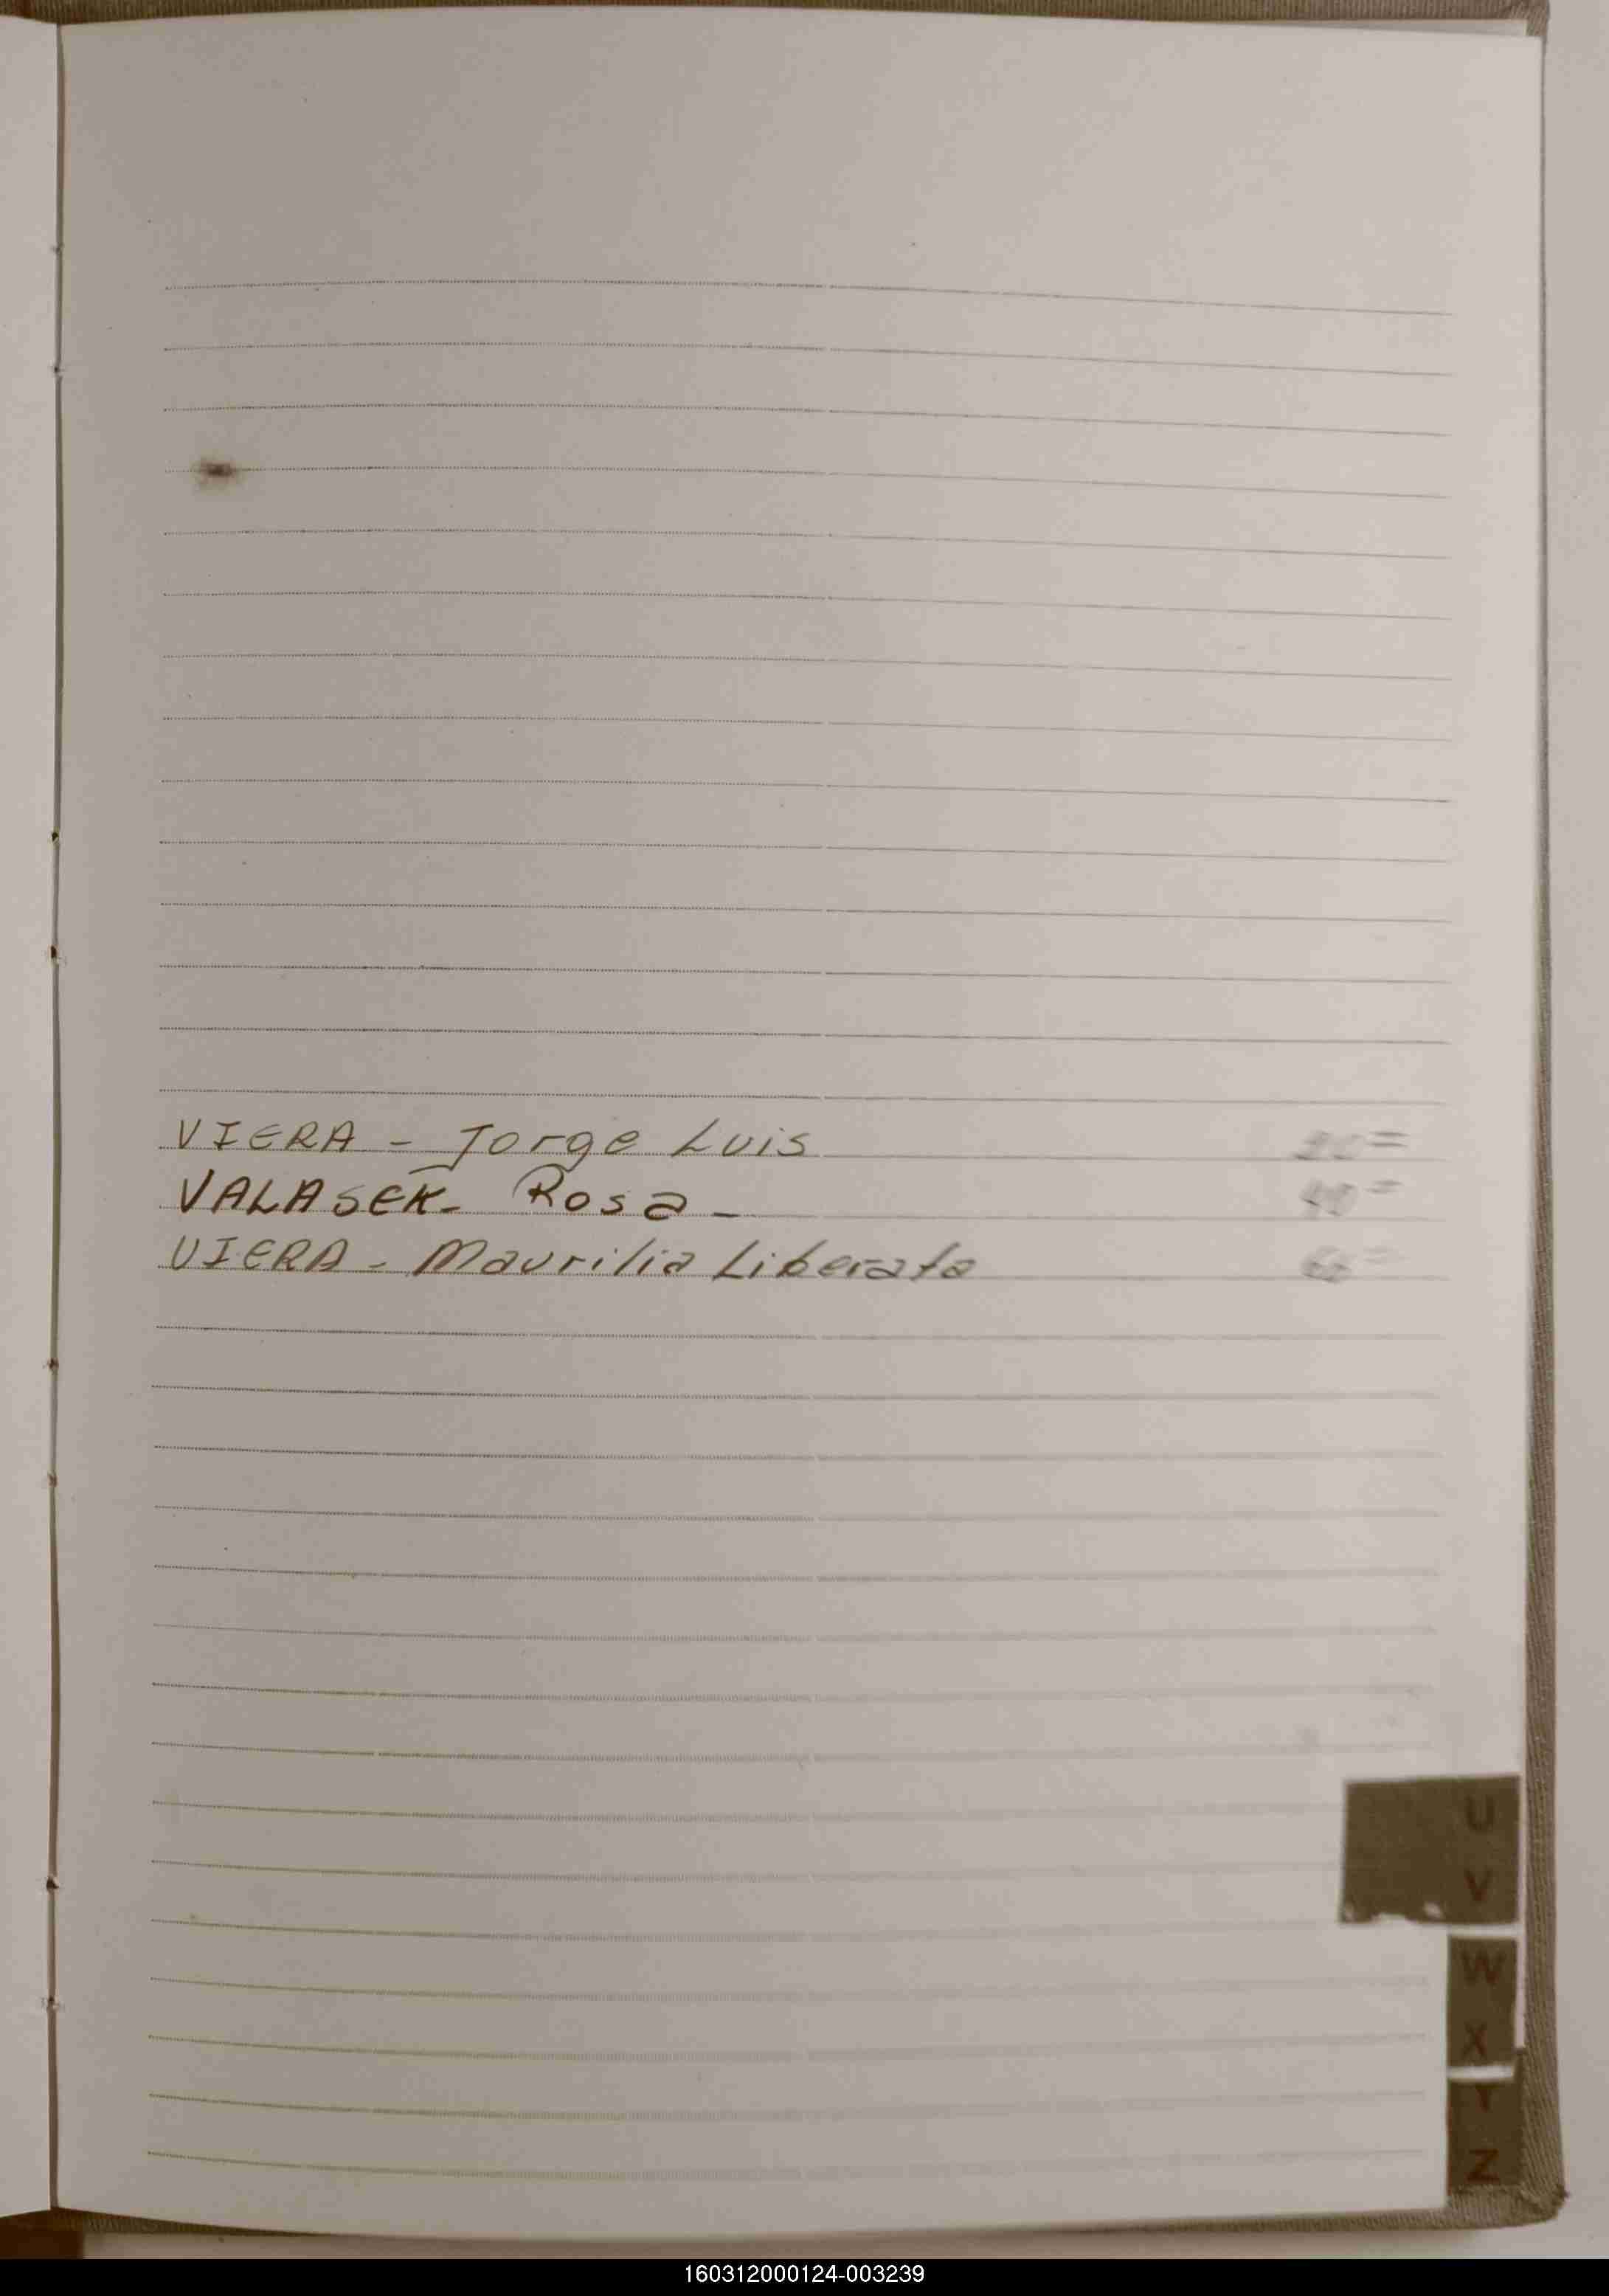 VIERA - Jorge Luis
VALASEK - Rosa -
VIERA - Maurilia Liberata
U
V
W
X
Y
Z
160312000124-003239